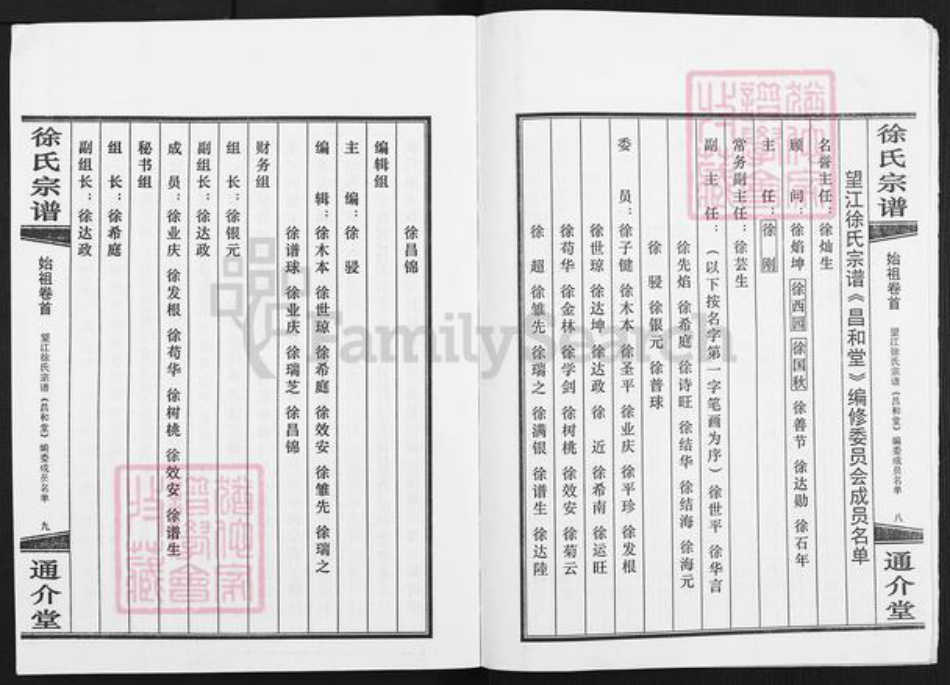 徐氏宗谱
始祖卷首
望江徐氏宗谱《昌和堂》编委成员名单
八
通介堂
望江徐氏宗谱《昌和堂》编修委员会成员名单
名誉主任：徐灿生
顾 问：徐焰坤 徐西四 徐国秋 徐善节 徐达勋 徐石年
主 任：徐 刚
常务副主任：徐芸生
副 主 任：（以下按名字第一字笔画为序）徐世平 徐华言
徐先焰 徐希庭 徐诗旺 徐结华 徐结海 徐海元
徐 骎 徐银元 徐普球
委 员：徐子键 徐木本 徐圣平 徐业庆 徐平珍 徐发根
徐世琼 徐达坤 徐达政 徐 近 徐希南 徐运旺
徐苟华 徐金林 徐学剑 徐树桃 徐效安 徐菊云
徐 超 徐雏先 徐瑞之 徐满银 徐谱生 徐达陸
徐昌锦
编辑组
主 编：徐 骎
编 辑：徐木本 徐世琼 徐希庭 徐效安 徐雏先 徐瑞之
徐谱球 徐业庆 徐瑞芝 徐昌锦
财务组
组 长：徐银元
副组长：徐达政
成 员：徐业庆 徐发根 徐苟华 徐树桃 徐效安 徐谱生
秘书组
组 长：徐希庭
副组长：徐达政
徐氏宗谱
始祖卷首
望江徐氏宗谱《昌和堂》编委成员名单
九
通介堂
FamilySearch